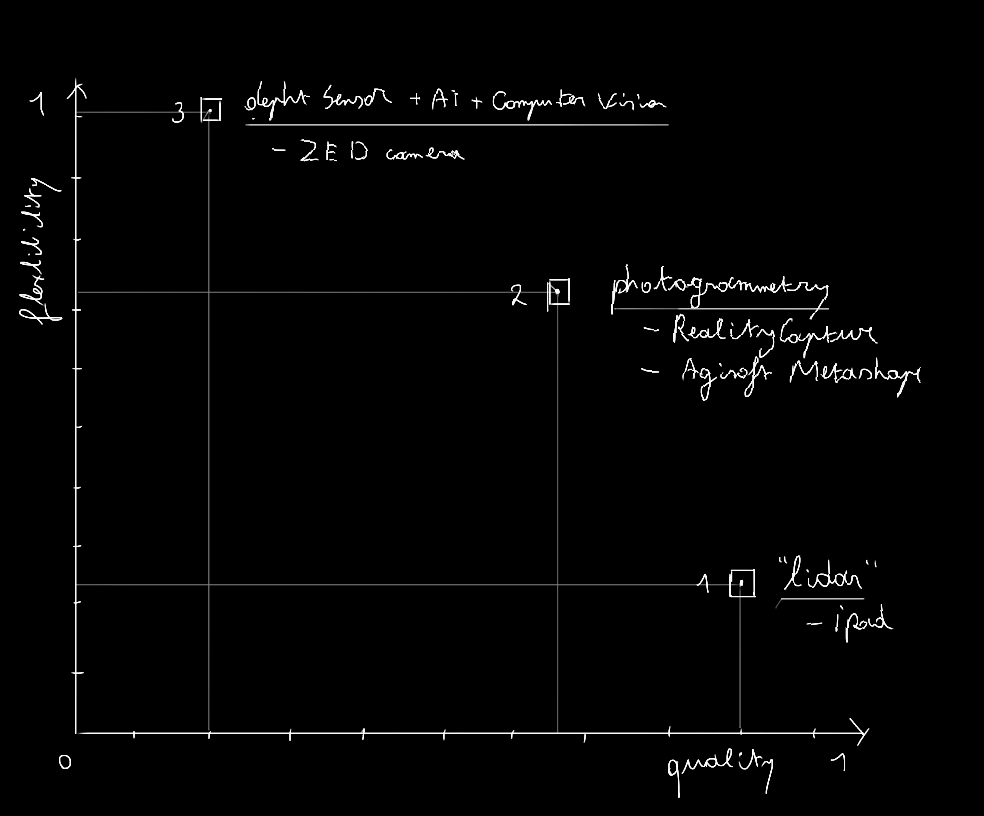 1
3 depht Sensor + AI + Computer Vision
- ZED camera
flexibility
2 photogrammetry
- RealityCapture
- Agisoft Metashape
1 "lidar"
- ipad
0
quality 1